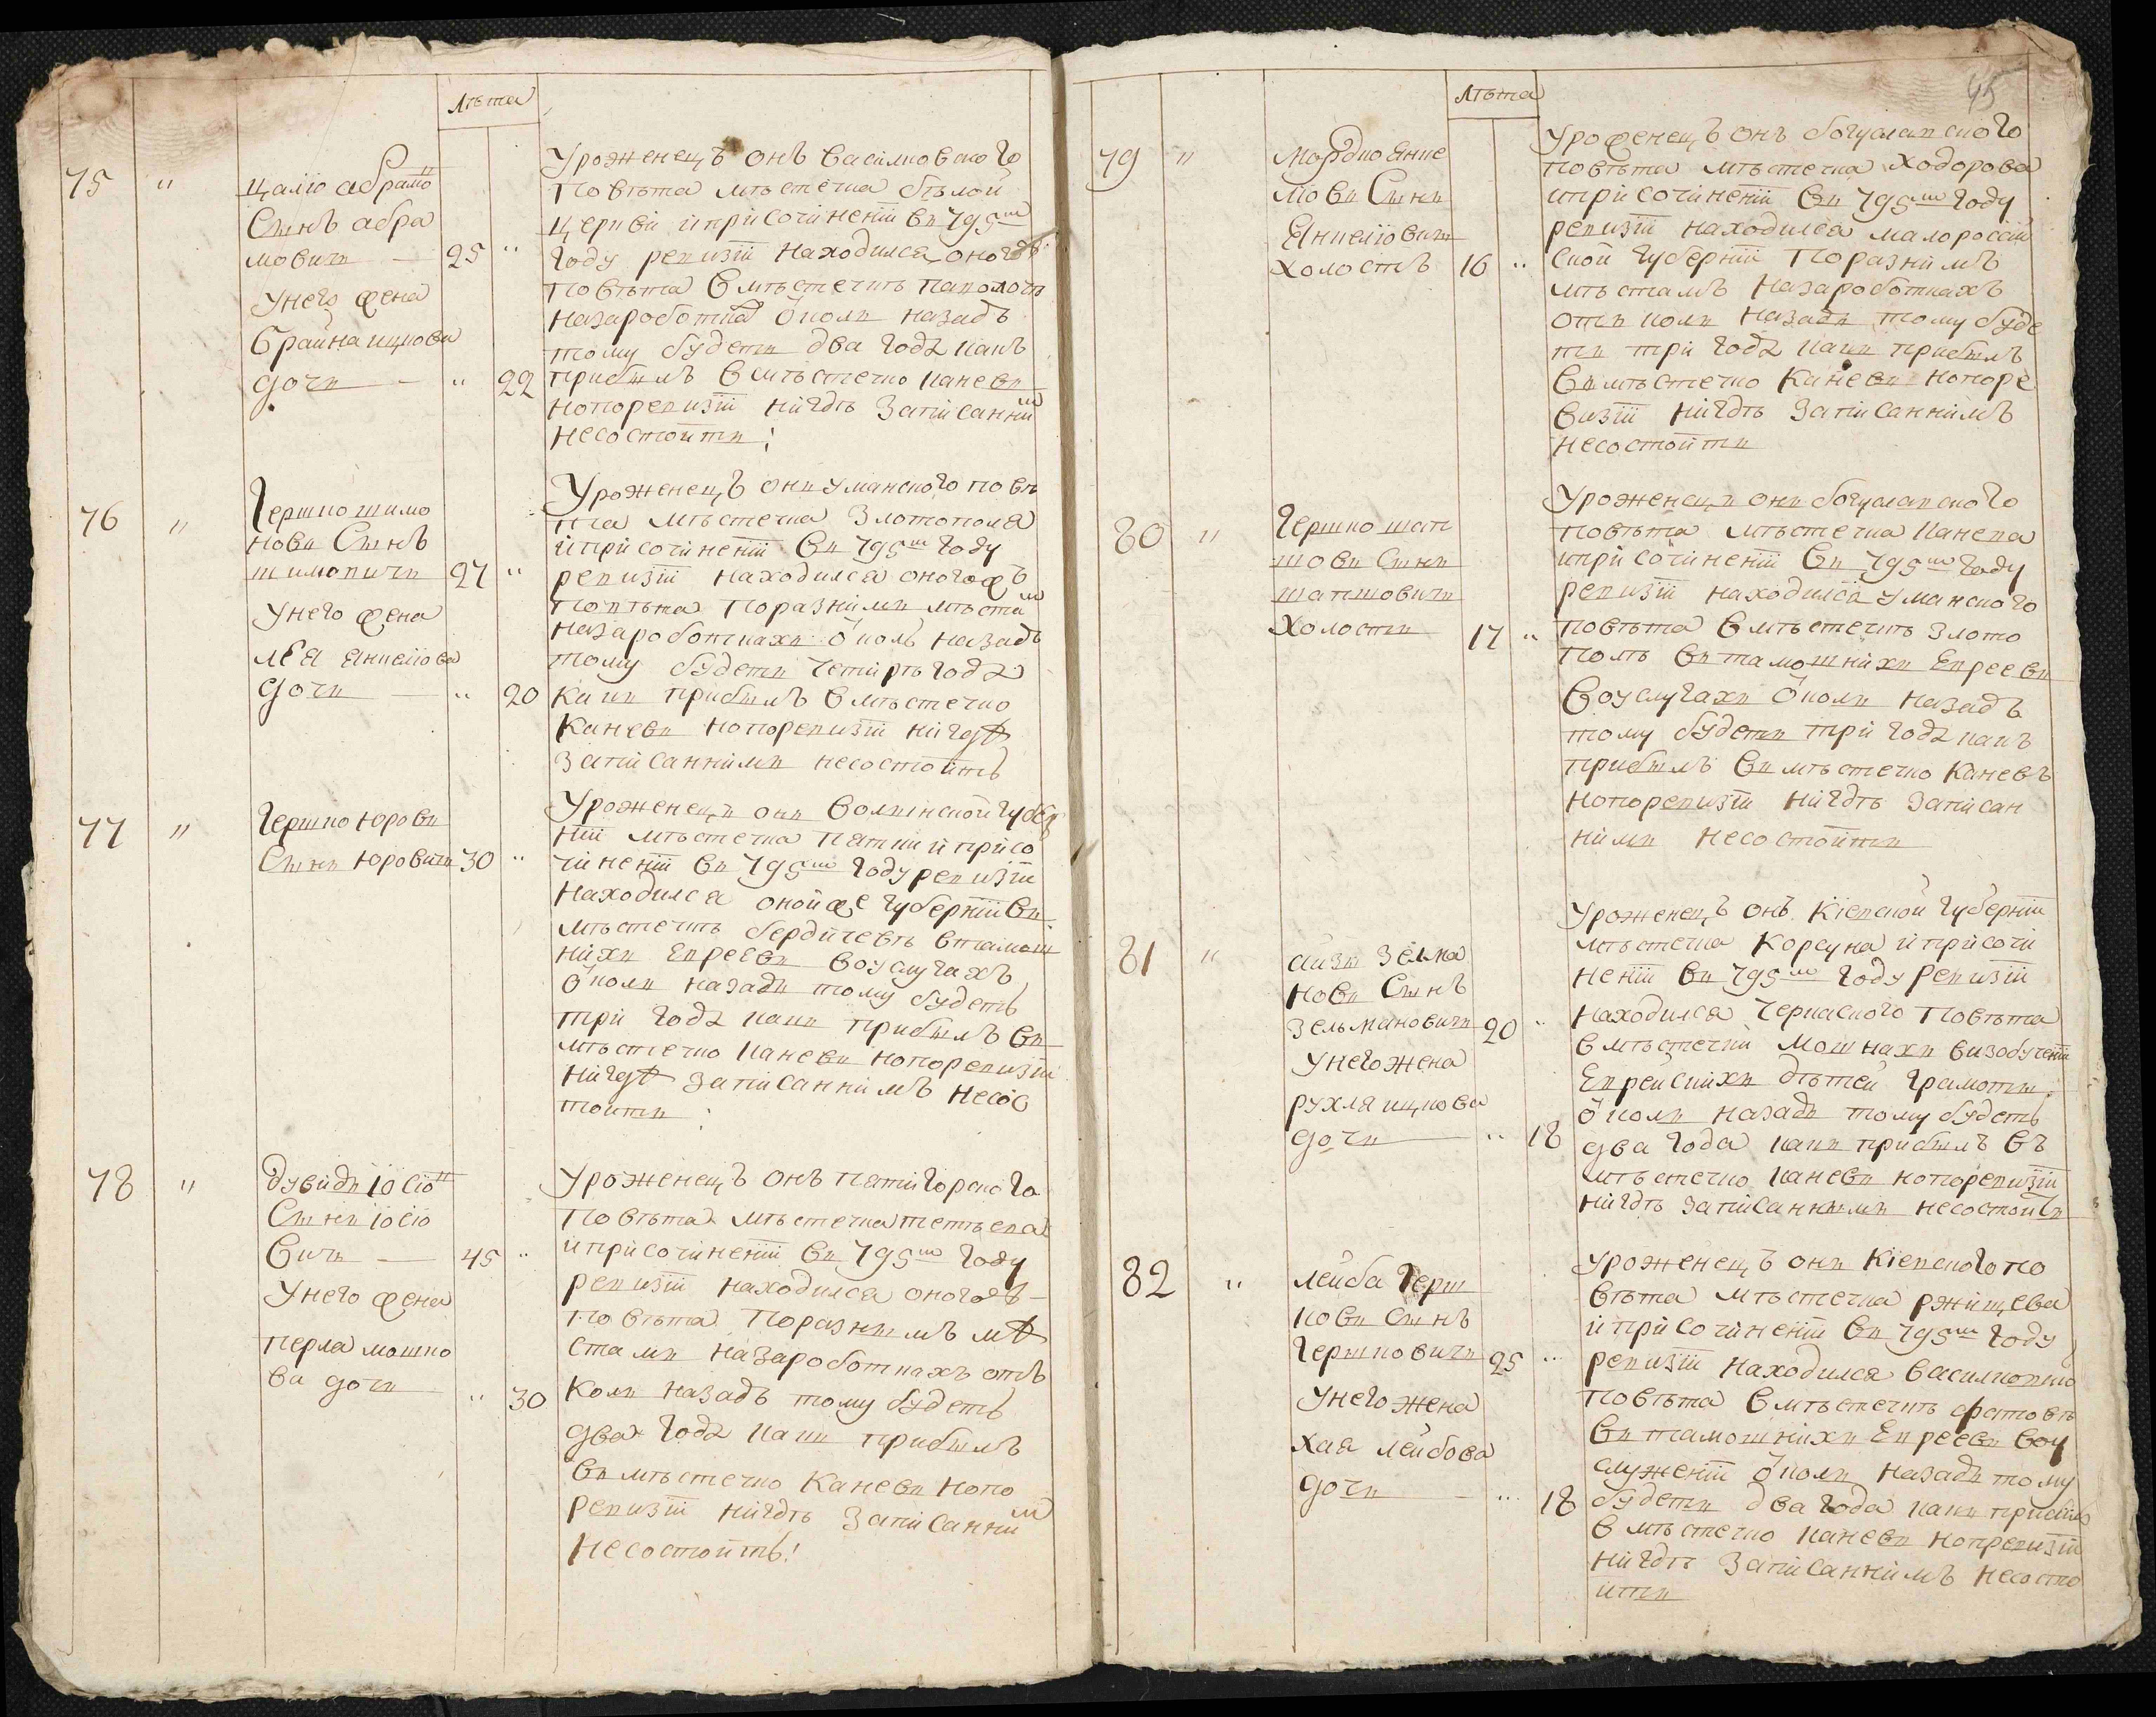 Лѣта
75 "
Цалю абрамо
Сынъ абра
мовичъ — 25 "
Унего жена
Брайна ицкова
дочь — " 22
Уроженецъ онъ Василковского
Повѣта мѣстечка бѣлой
Церкви и присочиненіи въ 795м
Году ревизіи находился оногожъ
Повѣта Вмѣстечкѣ
назароботка околъ назадъ
тому будетъ два года какъ
прибылъ Вмѣстечко каневъ
нопоревизіи нигдѣ Записанним
несостоитъ:
76 "
Гершко шимо
новъ Сынъ
шимовичъ 27 "
Унего жена
лея анкелова
дочь — " 20
Уроженецъ онъ уманского повѣ
та мѣстечка Златополя
и присочиненіи Въ 795м Году
ревизіи находился оногожъ
Повѣта Поразнимъ мѣстам
назароботкахъ околъ назадъ
тому будетъ четирѣ года
Какъ прибылъ Вмѣстечко
Каневъ нопоревизіи нигдѣ
Записаннимъ несостоитъ
77 "
Гершко юровъ
Сынъ юровичъ 30 "
Уроженецъ онъ Волынской губер
ніи мѣстечка и присо
чиненіи въ 795м Году ревизіи
находился онойже губерніи въ
мѣстечкѣ бердичевѣ втамош
нихъ Евреевъ воуслугахъ
околъ назадъ тому будетъ
три года какъ прибылъ въ
мѣстечко каневъ нопоревизіи
нигдѣ Записаннимъ несос
тоитъ:
78 "
Дувидъ іосіо
Сынъ іосіо
вичъ — 45 "
Унего жена
перла мошко
ва дочь " 30
Уроженецъ онъ пятигорского
Повѣта мѣстечка тетѣева
и присочиненіи въ 795м Году
ревизіи находился оногожъ
Повѣта Поразнымъ мѣ
стамъ назароботкахъ отъ
Колъ назадъ тому будетъ
два года какъ прибылъ
въ мѣстечко Каневъ нопо
ревизіи нигдѣ Записанним
несостоитъ!
45
Лѣта
79 "
Мордко Анке
ловъ Сынъ
Анкелювичъ
холостъ 16 "
Уроженецъ онъ богуславского
повѣта мѣстечка Ходорова
и присочиненіи въ 795м Году
ревизіи находился малоросій
ской Губерніи Поразнимъ
мѣстамъ назароботкахъ
отъ колъ назадъ тому буде
тъ три года какъ прибылъ
Въ мѣстечко Каневъ нопоре
визіи нигдѣ Записаннимъ
несостоитъ
80 "
Гершко шап
шовъ Сынъ
шапшовичъ
холостъ 17 "
Уроженецъ онъ богуславского
повѣта мѣстечка канева
и присочиненіи Въ 795м Году
ревизіи находился уманского
повѣта Вмѣстечкѣ злото
полѣ Въ тамошнихъ Евреевъ
Воуслугахъ околъ назадъ
тому будетъ три года какъ
прибылъ Въ мѣстечко Каневъ
нопоревизіи нигдѣ Записан
нимъ несостоитъ
81 "
айзи Зелма
новъ Сынъ
Зельмановичъ 20 "
Унего жена
рухля ицкова
дочь " 18
Уроженецъ онъ Кіевской Губерніи
мѣстечка Корсуна и присочи
неніи въ 795м Году ревизіи
находился Черкаского Повѣта
вмѣстечки мошнахъ визобученіи
Еврейскихъ дѣтей Грамоты
околъ назадъ тому будетъ
два года какъ прибылъ въ
мѣстечко каневъ нопоревизіи
нигдѣ записаннымъ несостоитъ
82 "
Лейба Герш
ковъ Сынъ
Гершковичъ 25 "
Унего жена
хая лейбова
дочь — " 18
Уроженецъ онъ Кіевского по
вѣта мѣстечка ржищева
и присочиненіи въ 795м Году
ревизіи находился василковско
повѣта Вмѣстечкѣ фастовѣ
Въ тамошнихъ Евреевъ воу
служеніи околъ назадъ тому
будетъ два года какъ прибылъ
Вмѣстечко каневъ нопревизіи
нигдѣ Записаннимъ несосто
итъ